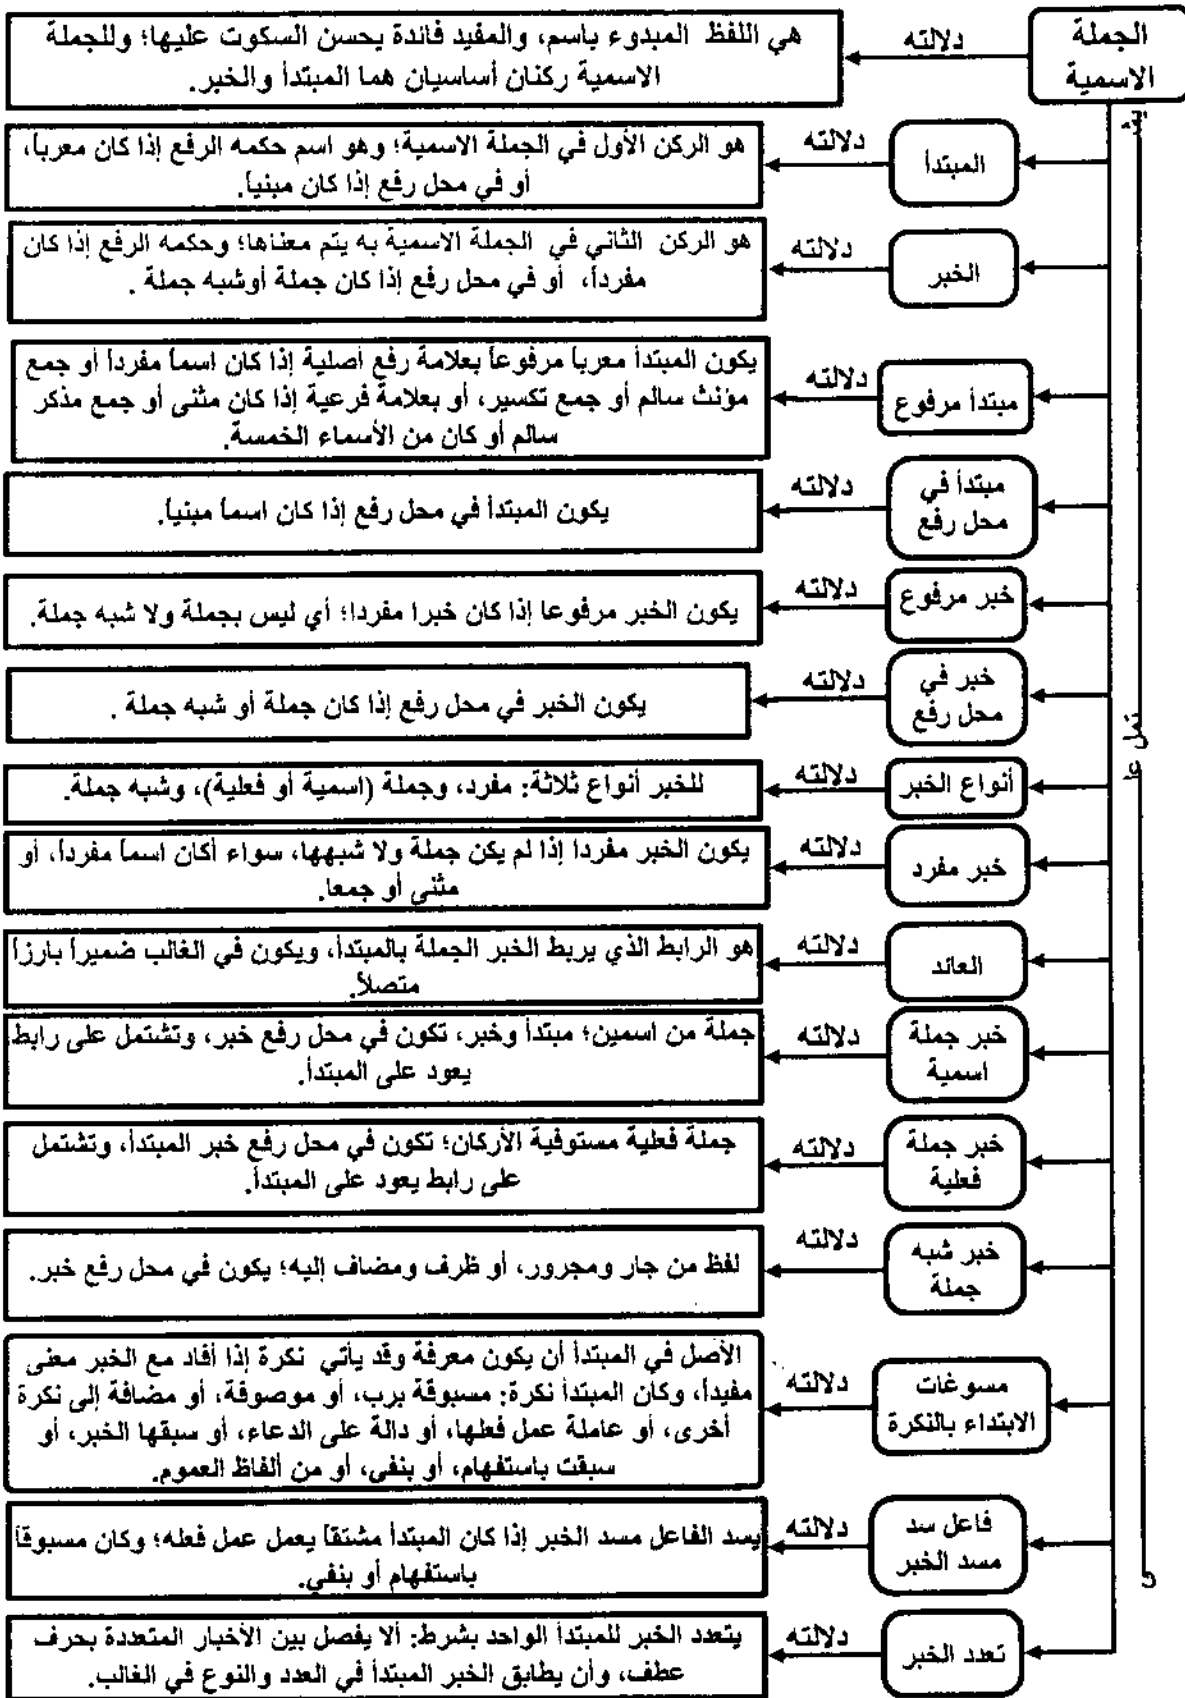 الجملة
الاسمية
دلالته
هي اللفظ المبدوء باسم، والمفيد فائدة يحسن السكوت عليها؛ وللجملة
الاسمية ركنان أساسيان هما المبتدأ والخبر.
يشتمل على
المبتدأ
دلالته
هو الركن الأول في الجملة الاسمية؛ وهو اسم حكمه الرفع إذا كان معرباً،
أو في محل رفع إذا كان مبنياً.
الخبر
دلالته
هو الركن الثاني في الجملة الاسمية به يتم معناها؛ وحكمه الرفع إذا كان
مفرداً، أو في محل رفع إذا كان جملة أوشبه جملة .
مبتدأ مرفوع
دلالته
يكون المبتدأ معرباً مرفوعاً بعلامة رفع أصلية إذا كان اسماً مفرداً أو جمع
مؤنث سالم أو جمع تكسير، أو بعلامة فرعية إذا كان مثنى أو جمع مذكر
سالم أو كان من الأسماء الخمسة.
مبتدأ في
محل رفع
دلالته
يكون المبتدأ في محل رفع إذا كان اسماً مبنياً.
خبر مرفوع
دلالته
يكون الخبر مرفوعا إذا كان خبرا مفردا؛ أي ليس بجملة ولا شبه جملة.
خبر في
محل رفع
دلالته
يكون الخبر في محل رفع إذا كان جملة أو شبه جملة .
أنواع الخبر
دلالته
للخبر أنواع ثلاثة: مفرد، وجملة (اسمية أو فعلية)، وشبه جملة.
خبر مفرد
دلالته
يكون الخبر مفردا إذا لم يكن جملة ولا شبهها، سواء أكان اسماً مفرداً، أو
مثنى أو جمعا.
العائد
دلالته
هو الرابط الذي يربط الخبر الجملة بالمبتدأ، ويكون في الغالب ضميراً بارزاً
متصلاً.
خبر جملة
اسمية
دلالته
جملة من اسمين؛ مبتدأ وخبر، تكون في محل رفع خبر، وتشتمل على رابط
يعود على المبتدأ.
خبر جملة
فعلية
دلالته
جملة فعلية مستوفية الأركان؛ تكون في محل رفع خبر المبتدأ، وتشتمل
على رابط يعود على المبتدأ.
خبر شبه
جملة
دلالته
لفظ من جار ومجرور، أو ظرف ومضاف إليه؛ يكون في محل رفع خبر.
مسوغات
الابتداء بالنكرة
دلالته
الأصل في المبتدأ أن يكون معرفة وقد يأتي نكرة إذا أفاد مع الخبر معنى
مفيداً، وكان المبتدأ نكرة: مسبوقة برب، أو موصوفة، أو مضافة إلى نكرة
أخرى، أو عاملة عمل فعلها، أو دالة على الدعاء، أو سبقها الخبر، أو
سبقت باستفهام، أو بنفي، أو من ألفاظ العموم.
فاعل سد
مسد الخبر
دلالته
يسد الفاعل مسد الخبر إذا كان المبتدأ مشتقاً يعمل عمل فعله؛ وكان مسبوقاً
باستفهام أو بنفي.
تعدد الخبر
دلالته
يتعدد الخبر للمبتدأ الواحد بشرط: ألا يفصل بين الأخبار المتعددة بحرف
عطف، وأن يطابق الخبر المبتدأ في العدد والنوع في الغالب.